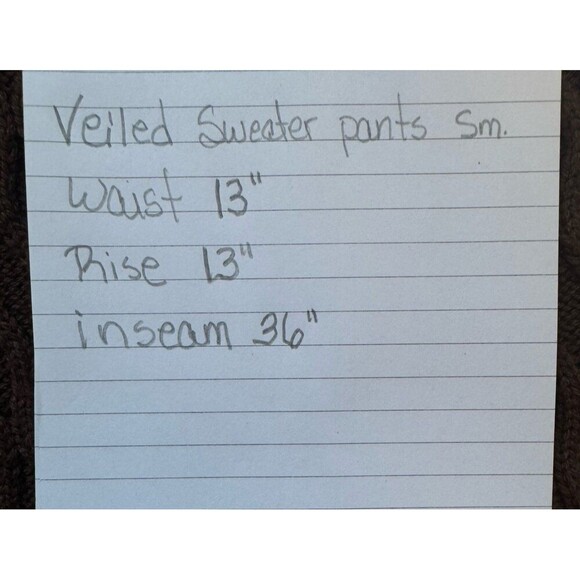 Veiled Sweater pants Sm.
Waist 13"
Rise 13"
inseam 36"